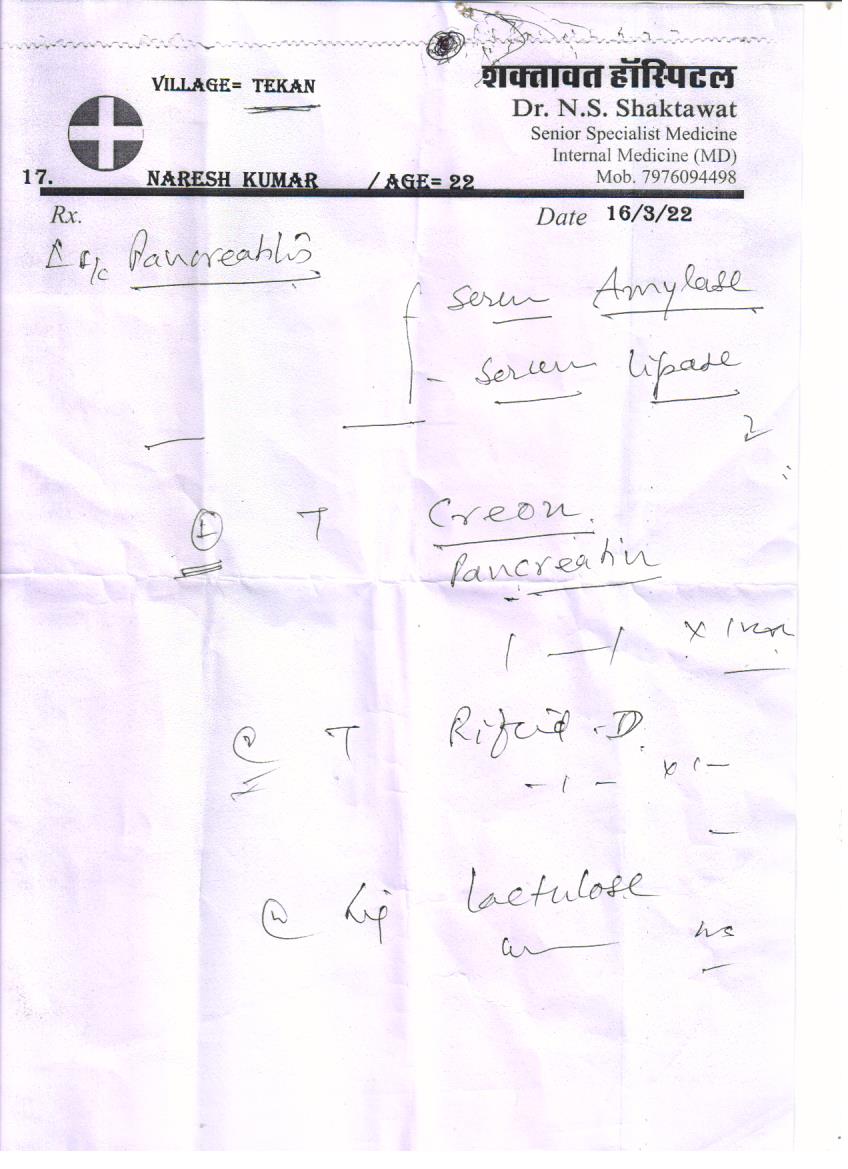 VILLAGE= TEKAN
शक्तावत हॉस्पिटल
Dr. N.S. Shaktawat
Senior Specialist Medicine
Internal Medicine (MD)
Mob. 7976094498
17. NARESH KUMAR / AGE= 22
Rx. Date 16/3/22
Pancreatitis
Serum Amylase
- Serum lipase
1 T Creon
Pancreatin
1 — 1 x
T D
- 1 - x 1-
Lactulose
HS